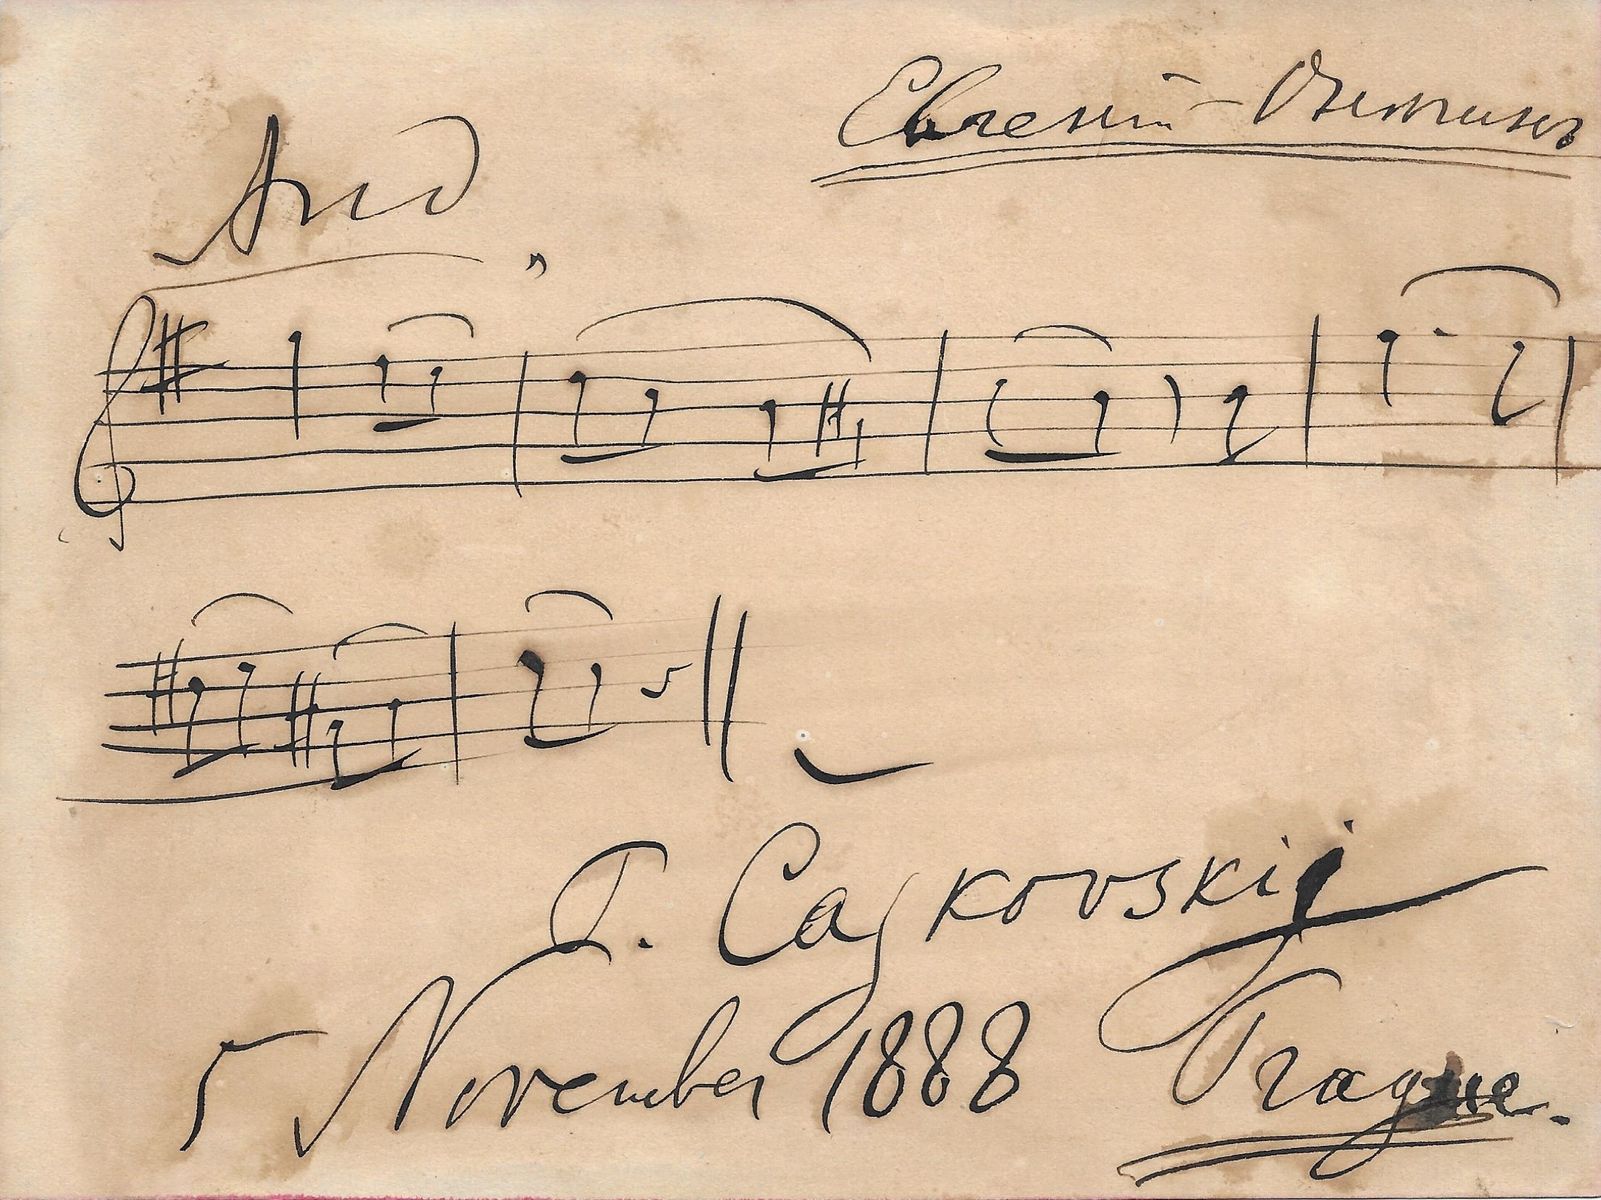 Евгеній Онѣгинъ
And
P. Čajkovskij
5 November 1888 Prague.